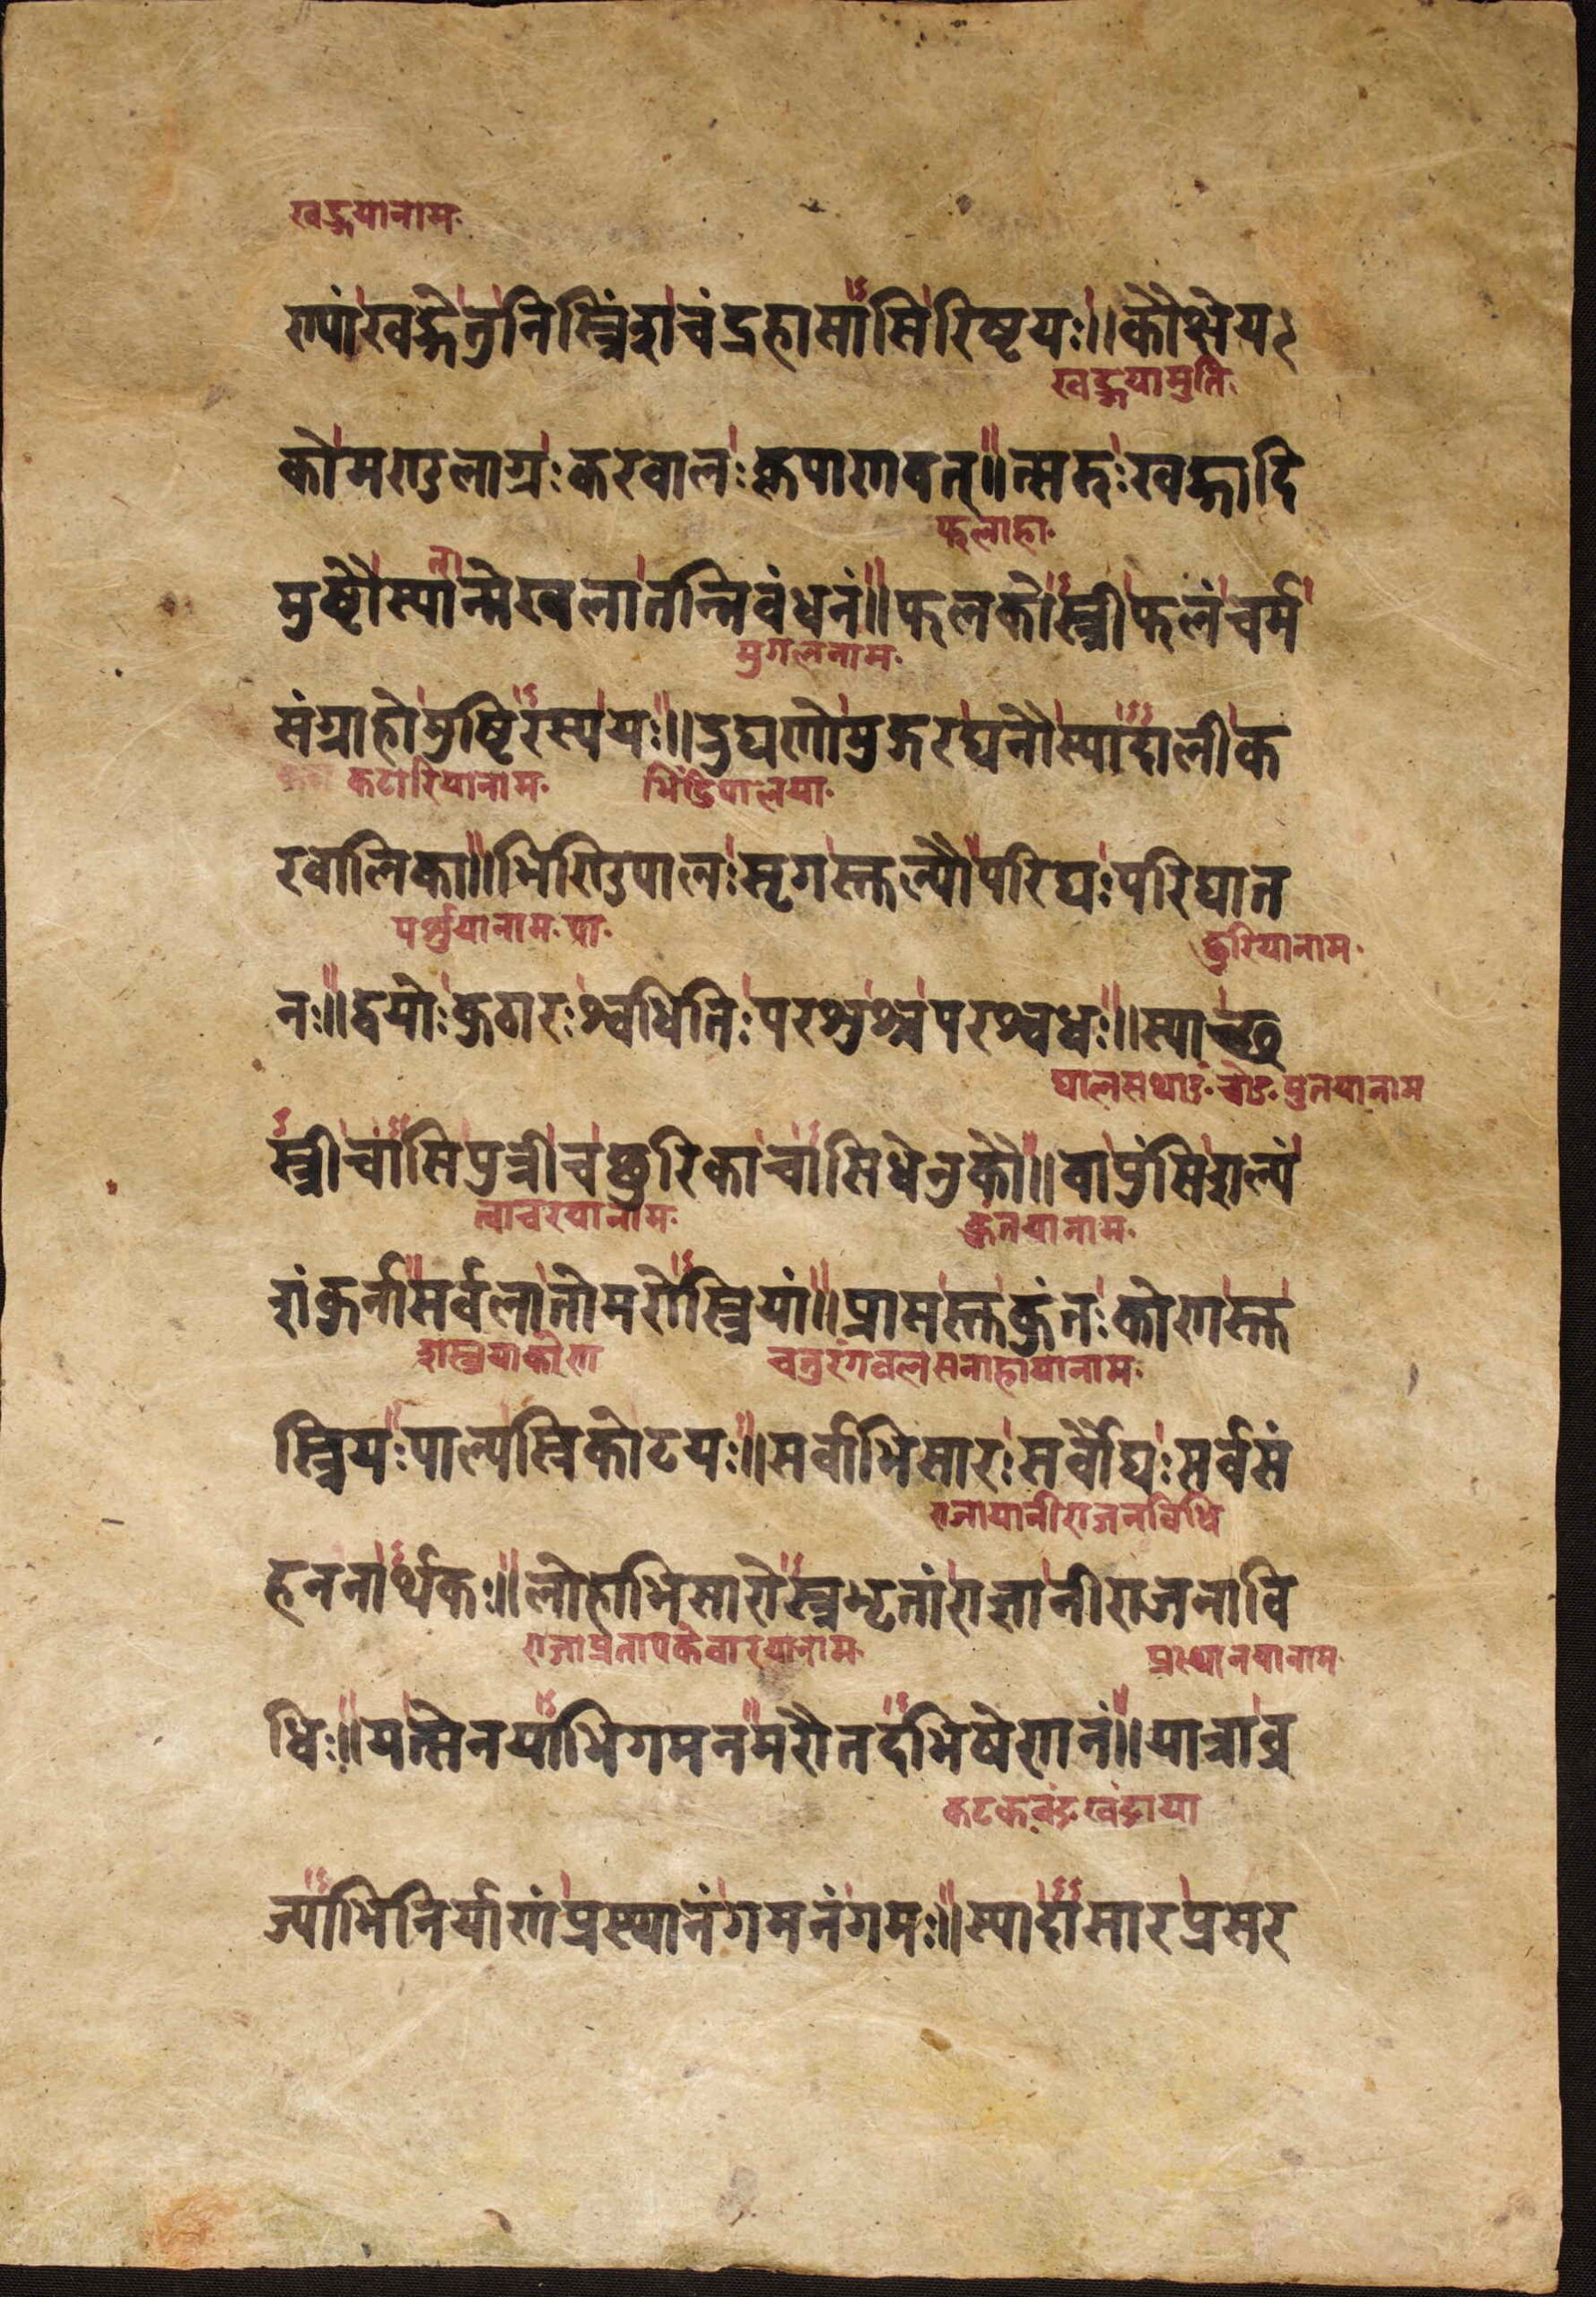 खड्गयानाम
ण्यां खड्गे तु निस्त्रिंश चंद्रहासासि रिष्टयः॥ कौक्षेय
खड्गयामुति
को मण्डलाग्रः करवालः कृपाणवत्॥ त्सरुः खड्गादि
फलाहा
मुष्टौ स्यान्मेखला तन्निबंधनं॥ फलकोस्त्री फलं चर्म
मुगलनाम
संग्राहो मुष्टिरस्य यः॥ द्रुघणो मुद्गरघनौ स्यादीलीक
कटारियानाम भिंडिपालया
रवालिका॥ भिण्डिपालः सृगस्तुल्यौ परिघः परिघात
पर्शुयानाम पा
छुरियानाम
नः॥ द्वयोः कुठारः श्वधितिः परशुश्च परश्वधः॥ स्याच्छ
घालसथाङ पुतयानाम
स्त्री चासिपुत्री च छुरिका चासिधेनुका॥ वा पुंसि शल्यं
त्वाचरयानाम
कुंतयानाम
शंकुर्ना सर्वला तोमरोस्त्रियां॥ प्रासस्तु कुंतः कोणस्तु
शस्त्रयाकोण
चतुरंगवलसनाहायानाम
स्त्रियः पाल्यस्त्रिकोटयः॥ सर्वाभिसारः सर्वौघः सर्वसं
राजायानीराजनविधि
हननार्थकः॥ लोहाभिसारोस्त्रभृतां राज्ञां नीराजनावि
राजाप्रतापकेवारयानाम
प्रस्थानयानाम
धिः॥ यत्सेनयाभिगमनमरौ तदभिषेणनं॥ यात्रा व्र
ज्याभिनिर्याणं प्रस्थानं गमनं गमः॥ स्यादासार प्रसर